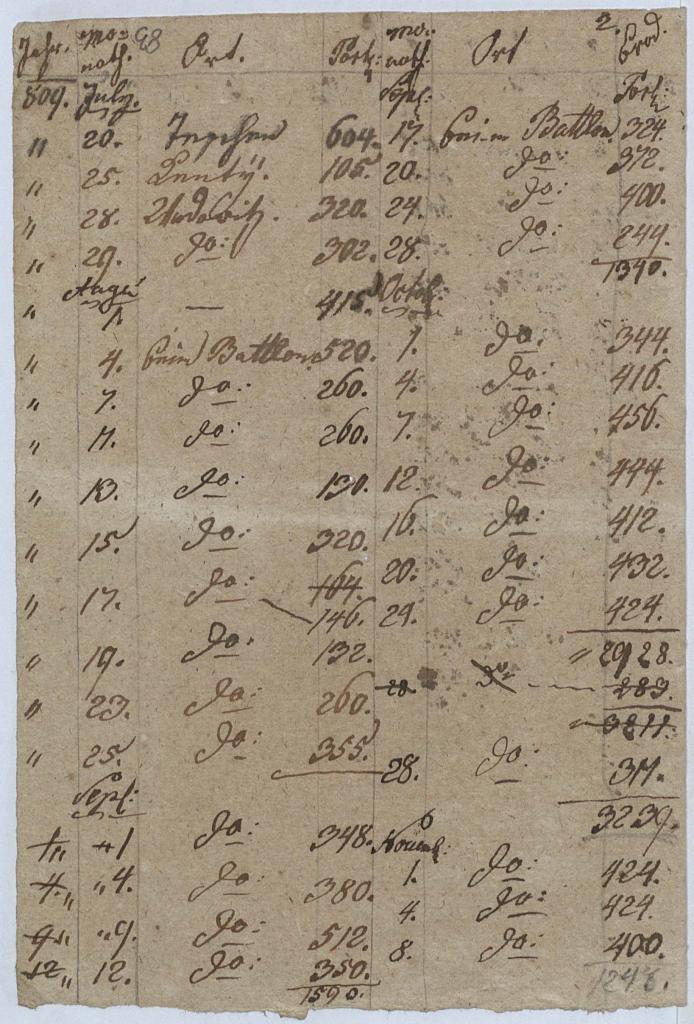 98 2.
Jahr. Mo=nath. Ort. Port: Mo=nath. Ort Brod.
809. July. Sept: Port:
" 20. 604. 17. beim Battlon 324.
" 25. 105. 20. do: 372.
" 28. 320. 24. do: 400.
" 29. do: 302. 28. do: 244.
1340.
" Augu 1. — 415. Octob:
" 4. beim Battlon 520. 1. do: 344.
" 7. do: 260. 4. do: 416.
" 11. do: 260. 7. do: 456.
" 13. do: 130. 12. do: 444.
" 15. do: 320. 16. do: 412.
" 17. do: 164. 20. do: 432.
146. 24. do: 424.
" 19. do: 132. " 2928.
" 23. do: 260. 28. do — 283.
" 3211.
" 25. do: 355. 28. do: 311.
Sept: 3239.
1" 1 do: 348. Novemb:
4." "4. do: 380. 1. do: 424.
9" "9. do: 512. 4. do: 424.
12" 12. do: 350. 8. do: 400.
1590. 1248.